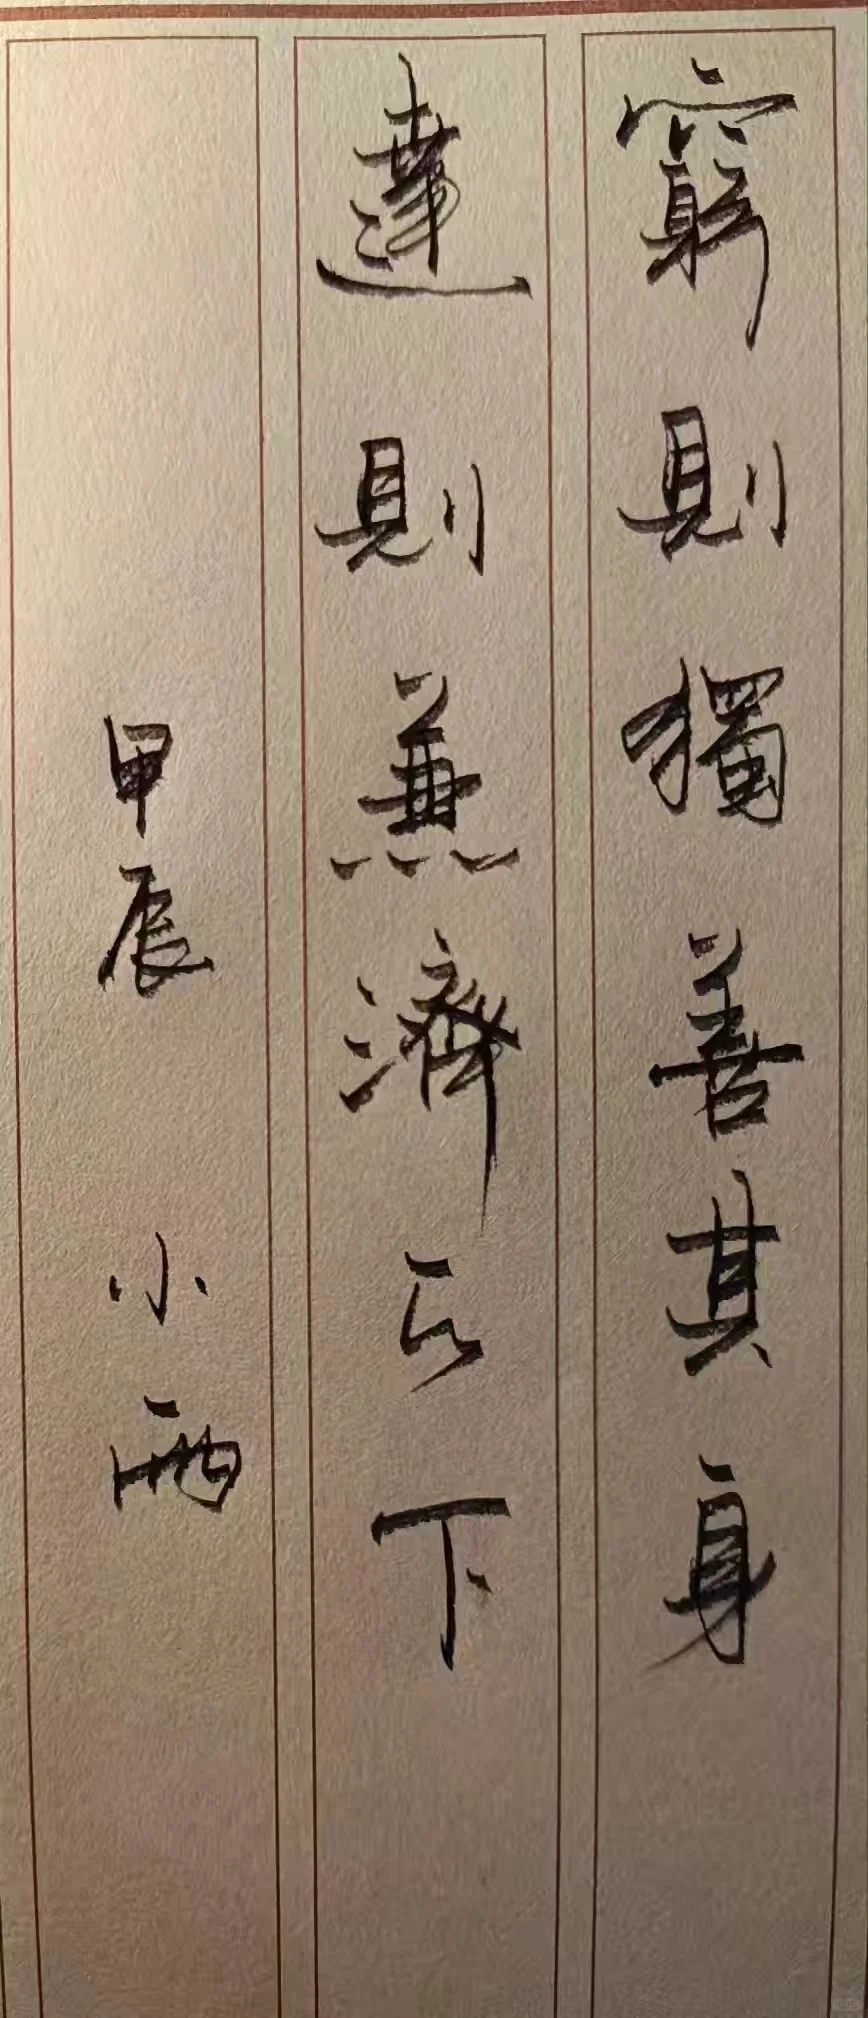 窮則獨善其身
達則兼濟天下
甲辰 小雨